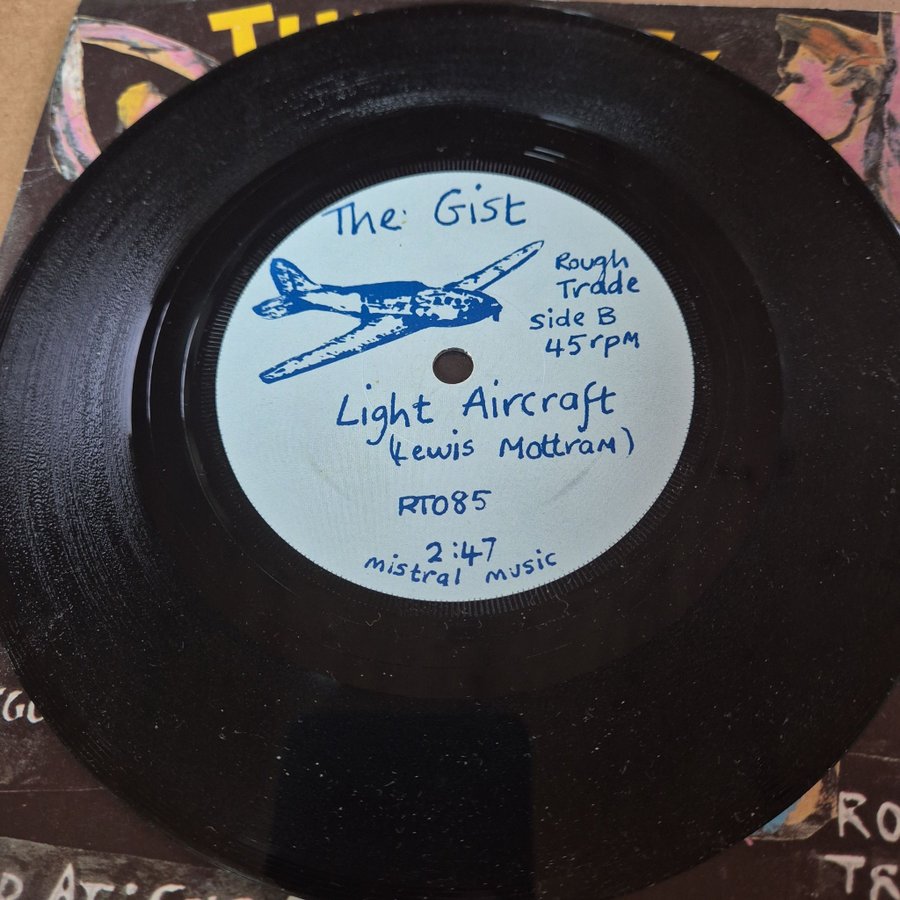 The Gist
Rough
Trade
side B
45rpm
Light Aircraft
(Lewis Mottram)
RT085
2:47
mistral music